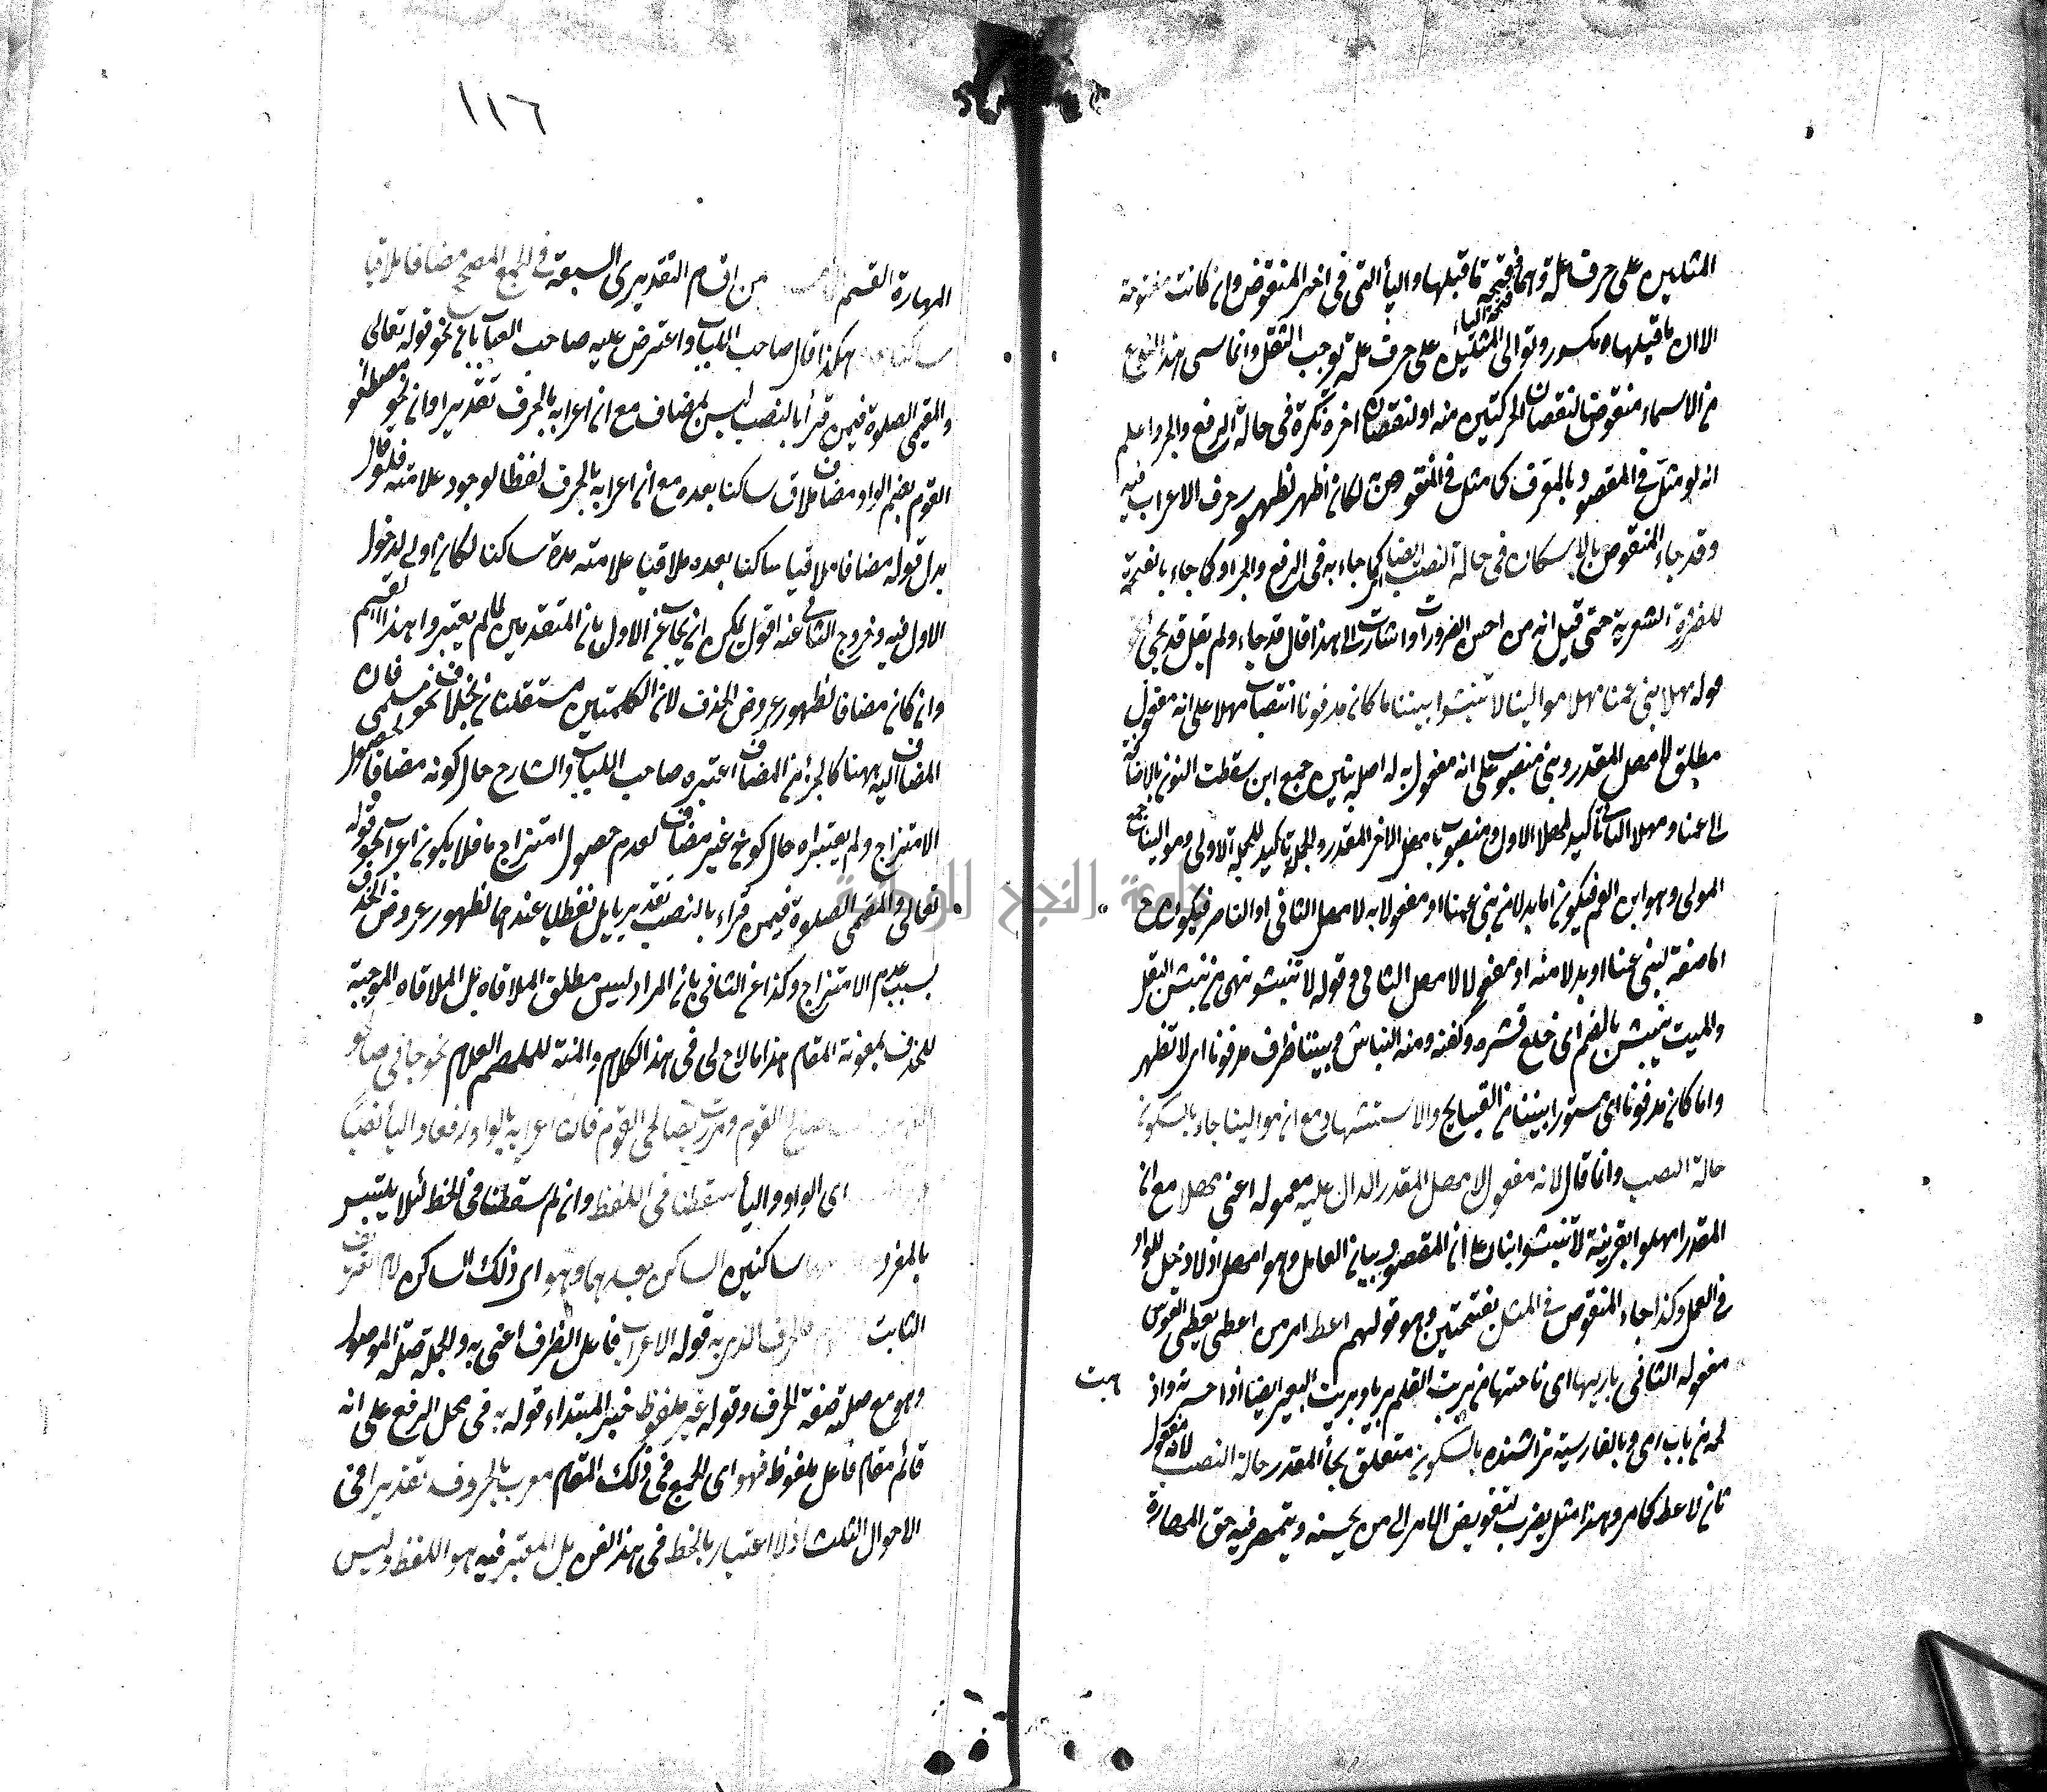 المثلين على حرف علة وهما فتحة ما قبلها والياء التي في اخر المنقوض وان كانت مفتوحة
الا ان ما قبلها مكسور وتوالى المثلين على حرف علة توجب الثقل وانما سمى هذا النوع
فتحة الياء
من الاسماء منقوضا لنقصان الحركتين منه او لنقصان اخره نكرة في حالة الرفع والجر واعلم
انه لو مثل في المقصور بالمعرف كما مثل في المنقوص لكان اظهر لظهور حرف الاعراب فيه
وقد جاء المنقوص بالاسكان في حالة النصب ايضا كما جاء به في الرفع والجر او كما جاء بالفتحة
للضرورة الشعرية حتى قيل انه من احسن الضرورات واشارت الى هذا قال قد جاء ولم يقل قد يجئ
قوله مهلا بني عمنا مهلا موالينا لا تنبشوا بيننا ما كان مدفونا انتصاب مهلا على انه مفعول
مطلق لامهل المقدر وبني منصوب على انه مفعول به له اصله بنين جمع ابن سقطت النون بالاضافة
الى عمنا ومهلا الثاني تأكيد لمهلا الاول ومنصوب بامهل الاخر المقدر والجملة تأكيد للجملة الاولى وموالينا جمع
المولى وهو ابن العم فيكون اما بدلا من بني عمنا او مفعولا به لامهل الثاني او الناصر فيكون ح
اما صفة لبني عمنا او بدلا منه او مفعولا لامهل الثاني وقوله لا تنبشو نهى من نبش البقل
والميت ينبش بالضم اى خلع قشره وكفنه ومنه النباش وبيننا ظرف مدفونا اى لا تظهر
واما كان مدفونا اى مستورا بيننا من القبايح والاستشهاد مع ان موالينا جاء بالسكون
حالة النصب وانما قال لانه مفعول لامهل المقدر الدال عليه معموله اعنى مهلا مع ان
المقدر امهلوا بقرينة لا تنبشوا بناء على ان المقصود بيان العامل وهو امهل اذ لا دخل للواو
في العمل وكذا جاء المنقوص في المثل بفتحتين وهو قولهم اعط امر من اعطى يعطى القوس
مفعوله الثاني باريها اى ناحتها من بريت القلم بريا وبريت البعير ايضا اذا حسرته واذ
هبت
لحمه من باب رمى وبالفارسية تراشنده بالسكون متعلق بجاء المقدر حالة النصب لانه مفعول
ثان لاعط كما مر وهذا مثل يضرب لتفويض الامر الى من يحسنه ويتمهر فيه حق المهارة
١١٦
المهارة القسم من اقسام التقديرى السبعة في الجمع المصحح مضافا ملاقيا
ساكنا هكذا قال صاحب اللباب واعترض عليه صاحب العباب بان نحو قوله تعالى
والمقيمى الصلوة فيمن قرأ بالنصب ليس بمضاف مع ان اعرابه بالحرف تقديرا وان نحو مصطفو
القوم بضم الواو مضاف ملاق ساكنا بعده مع ان اعرابه بالحرف لفظا لوجود علامته فلو قال
بدل قوله مضافا ملاقيا ساكنا بعده ملاقيا علامته مدة ساكنا لكان اولى لدخول
الاول فيه وخروج الثاني عنه اقول يمكن ان يجاب عن الاول بان المتقدمين لما لم يعتبروا هذا القسم
وان كان مضافا لظهور عروض الحذف لان الكلمتين مستقلتان بخلاف نحو مسلمى فان
المضاف اليه ههنا كالجزء من المضاف اعتبره صاحب اللباب والشارح حال كونه مضافا لحصول
الامتزاج ولم يعتبراه حال كونه غير مضاف لعدم حصول امتزاج ما فلا يكون اعراب نحو قوله
تعالى والمقيمى الصلوة فيمن قراء بالنصب تقديريا بل لفظيا عندهما لظهور عروض الحذف
بسبب عدم الامتزاج وكذا عن الثاني بان المراد ليس مطلق الملاقاه بل الملاقاه الموجبة
للحذف بمعونة المقام هذا ما لاح لى في هذا الكلام والمنة للملهم العلام نحو جاءني صالحو
القوم صالح القوم ومررت بصالحى القوم فان اعرابه بالواو رفعا والياء نصبا
اى الواو والياء سقطتا في اللفظ وان لم سقطتا في الخط لئلا يلتبس
بالمفرد ساكنين الساكن بعدهما وهو اى ذلك الساكن لام التعريف
الثابت الحرف الذى به قوله الاعراب فاعل الظرف اعنى به والجملة صلة الموصول
وهو مع صلته صفة الحرف وقوله غير ملفوظ خبر المبتداء قوله به في محل الرفع على انه
قائم مقام فاعل ملفوظ فهو اى الجمع في ذلك المقام معرب بالحروف تقديرا في
الاحوال الثلث اذ لا اعتبار بالخط في هذا الفن بل المعتبر فيه هو اللفظ وليس
جامعة النجاح الوطنية